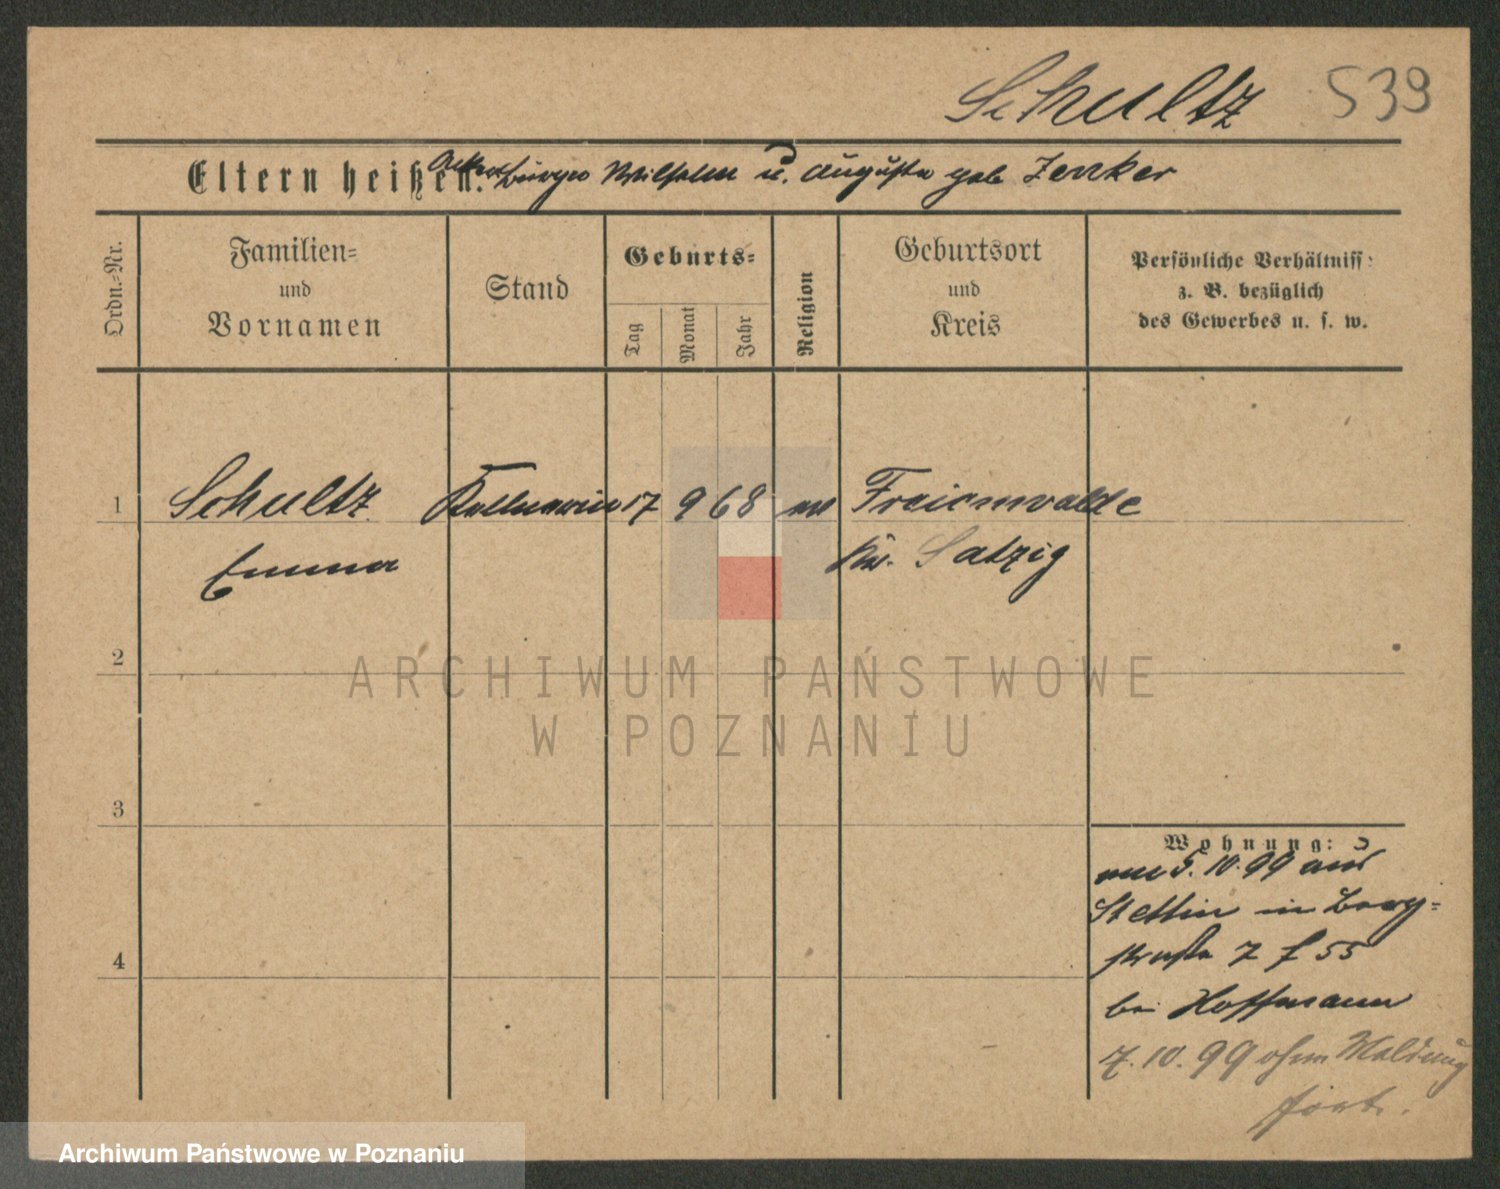 Schultz 539
Eltern heißen: Ackerbürger Wilhelm u. Auguste geb Zenker
Ordn.-Nr.
Familien-
und
Vornamen
Stand
Geburts-
Tag
Monat
Jahr
Religion
Geburtsort
und
Kreis
Persönliche Verhältniss
z. B. bezüglich
des Gewerbes u. s. w.
1 Schultz Kellnerin 17 9 68 ev Freienwalde
Emma Kr. Satzig
2
ARCHIWUM PAŃSTWOWE
W POZNANIU
3
Wohnung:
am 5. 10. 99 aus
Stettin in Berg-
4
straße 7 f 55
bei Hoffmann
7. 10. 99 ohne Meldung
fort.
Archiwum Państwowe w Poznaniu